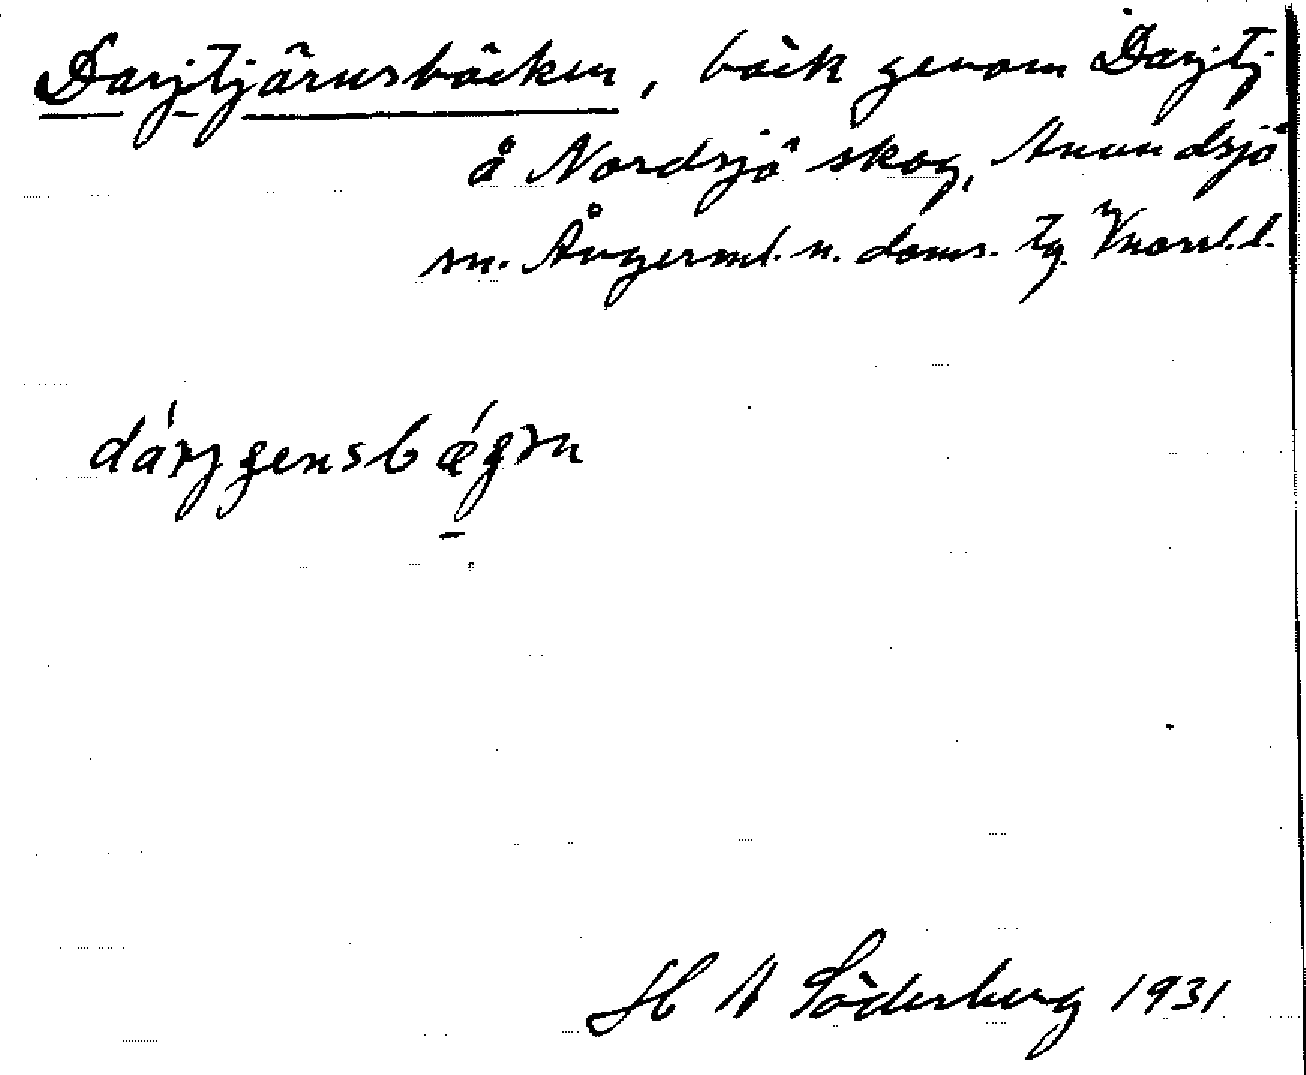 Darjtjärnsbäcken, bäck genom Darjtj.
å Nordsjö skog, Anundsjö
sn. Ångerml. n. doms. tg. Vnorrl. l.
dárjgensbǽgm
H A Söderberg 1931